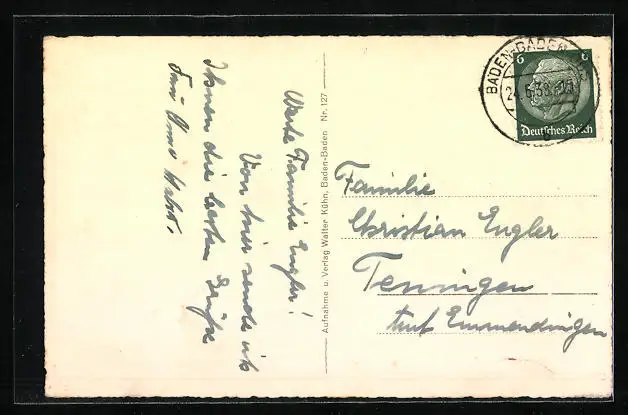 Werte Familie Engler!
Von hier sende ich
Ihnen die besten Grüße
Frau
Aufnahme u. Verlag Walter Kühn, Baden-Baden Nr. 127
BADEN-BADEN
6 6
Deutsches Reich
Familie
Christian Engler
Teningen
Emmendingen